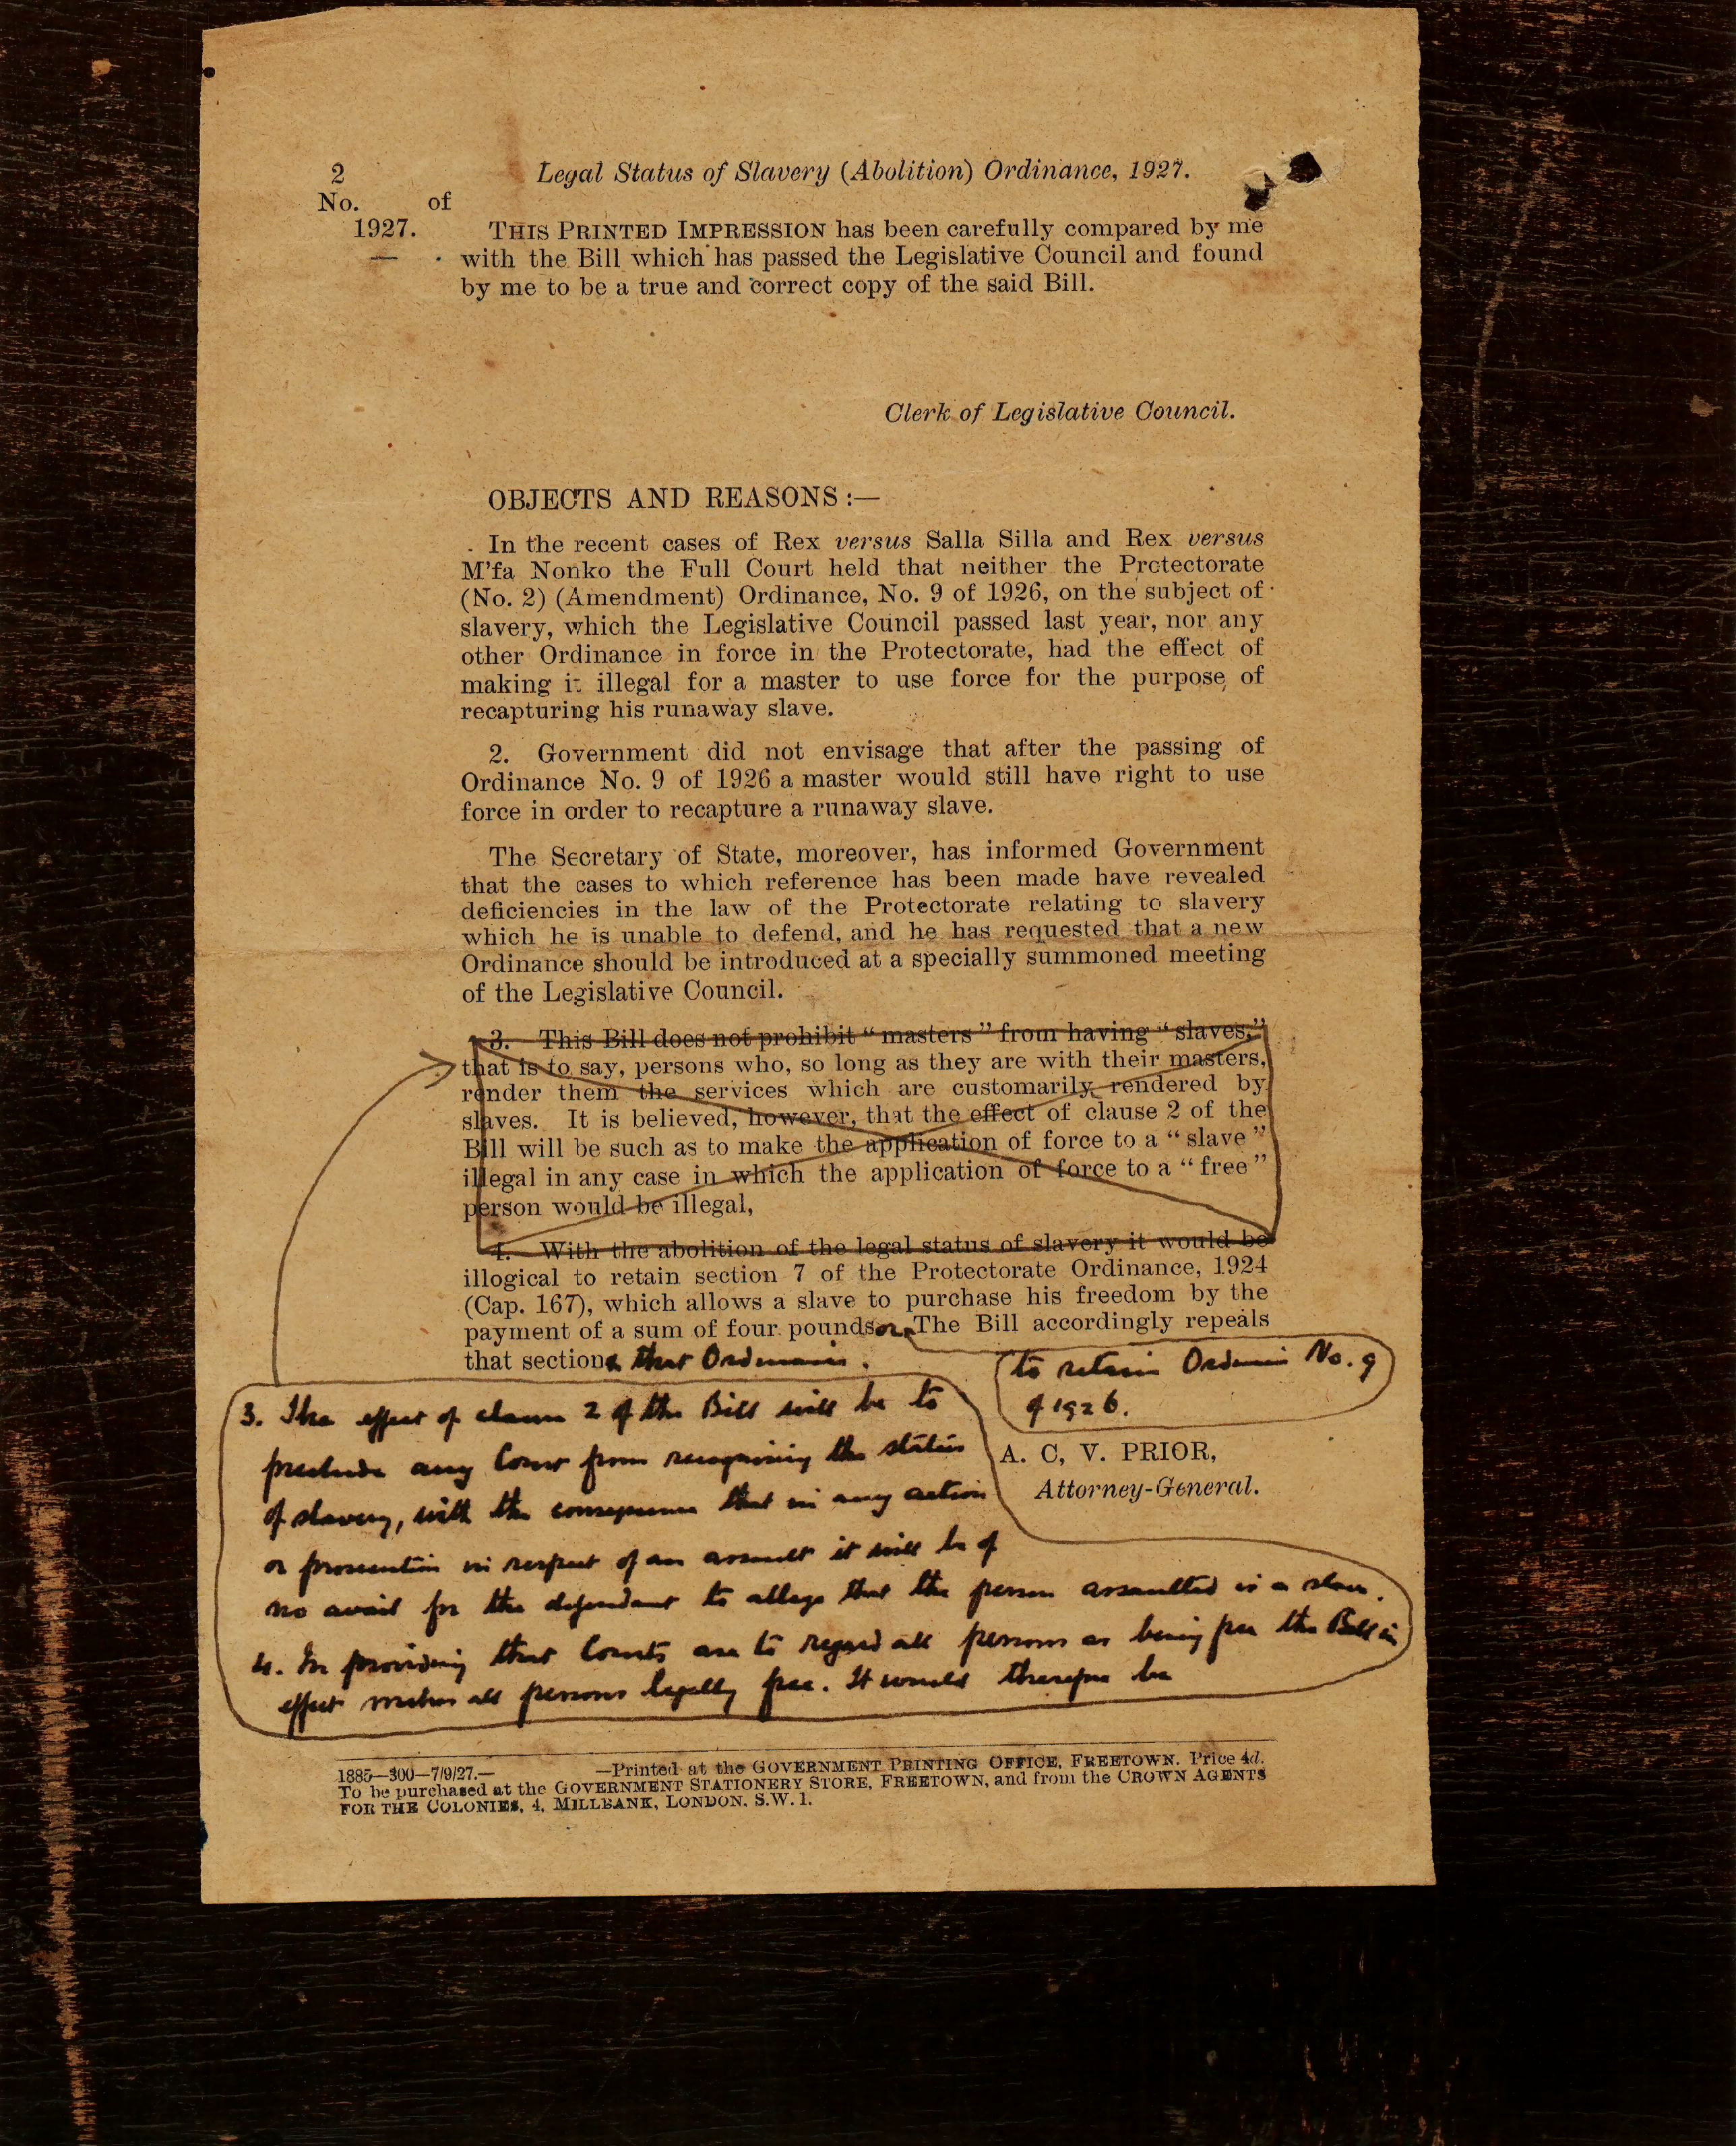 2
Legal Status of Slavery (Abolition) Ordinance, 1927.
No. of
1927.
THIS PRINTED IMPRESSION has been carefully compared by me
with the Bill which has passed the Legislative Council and found
by me to be a true and correct copy of the said Bill.
Clerk of Legislative Council.
OBJECTS AND REASONS :—
In the recent cases of Rex versus Salla Silla and Rex versus
M'fa Nonko the Full Court held that neither the Protectorate
(No. 2) (Amendment) Ordinance, No. 9 of 1926, on the subject of
slavery, which the Legislative Council passed last year, nor any
other Ordinance in force in the Protectorate, had the effect of
making it illegal for a master to use force for the purpose of
recapturing his runaway slave.
2. Government did not envisage that after the passing of
Ordinance No. 9 of 1926 a master would still have right to use
force in order to recapture a runaway slave.
The Secretary of State, moreover, has informed Government
that the cases to which reference has been made have revealed
deficiencies in the law of the Protectorate relating to slavery
which he is unable to defend, and he has requested that a new
Ordinance should be introduced at a specially summoned meeting
of the Legislative Council.
3. This Bill does not prohibit “ masters ” from having “ slaves,”
that is to say, persons who, so long as they are with their masters,
render them the services which are customarily rendered by
slaves. It is believed, however, that the effect of clause 2 of the
Bill will be such as to make the application of force to a “ slave ”
illegal in any case in which the application of force to a “ free ”
person would be illegal,
4. With the abolition of the legal status of slavery it would be
illogical to retain section 7 of the Protectorate Ordinance, 1924
(Cap. 167), which allows a slave to purchase his freedom by the
payment of a sum of four pounds or The Bill accordingly repeals
that section & that Ordinance.
to retain Ordinance No. 9
of 1926.
3. The effect of clause 2 of the Bill will be to
preclude any Court from recognising the status
of slavery, with the consequence that in any action
or prosecution in respect of an assault it will be of
no avail for the defendant to allege that the person assaulted is a slave.
4. In providing that Courts are to regard all persons as being free the Bill in
effect makes all persons legally free. It would therefore be
A. C, V. PRIOR,
Attorney-General.
1885—300—7/9/27.— —Printed at the GOVERNMENT PRINTING OFFICE, FREETOWN. Price 4d.
To be purchased at the GOVERNMENT STATIONERY STORE, FREETOWN, and from the CROWN AGENTS
FOR THE COLONIES, 4, MILLBANK, LONDON. S.W. 1.